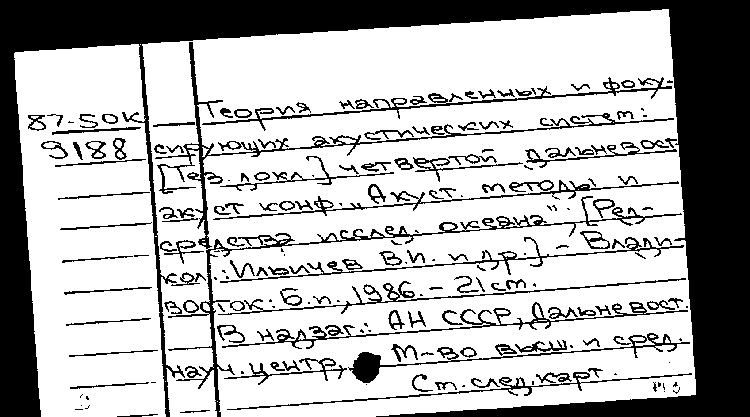 Теория направленных и фоку-
87-50К
сирующих акустических систем:
9188
[Тез. докл.] четвертой дальневост.
акуст конф. „Акуст. методы и
средства исслед. океана"; [Ред-
кол.: Ильичев В.И. и др.] - Влади-
восток: Б.и., 1986. - 21 см.
В надзаг.: АН СССР, Дальневост.
науч. центр, М-во высш. и сред.
Ст. след. карт.